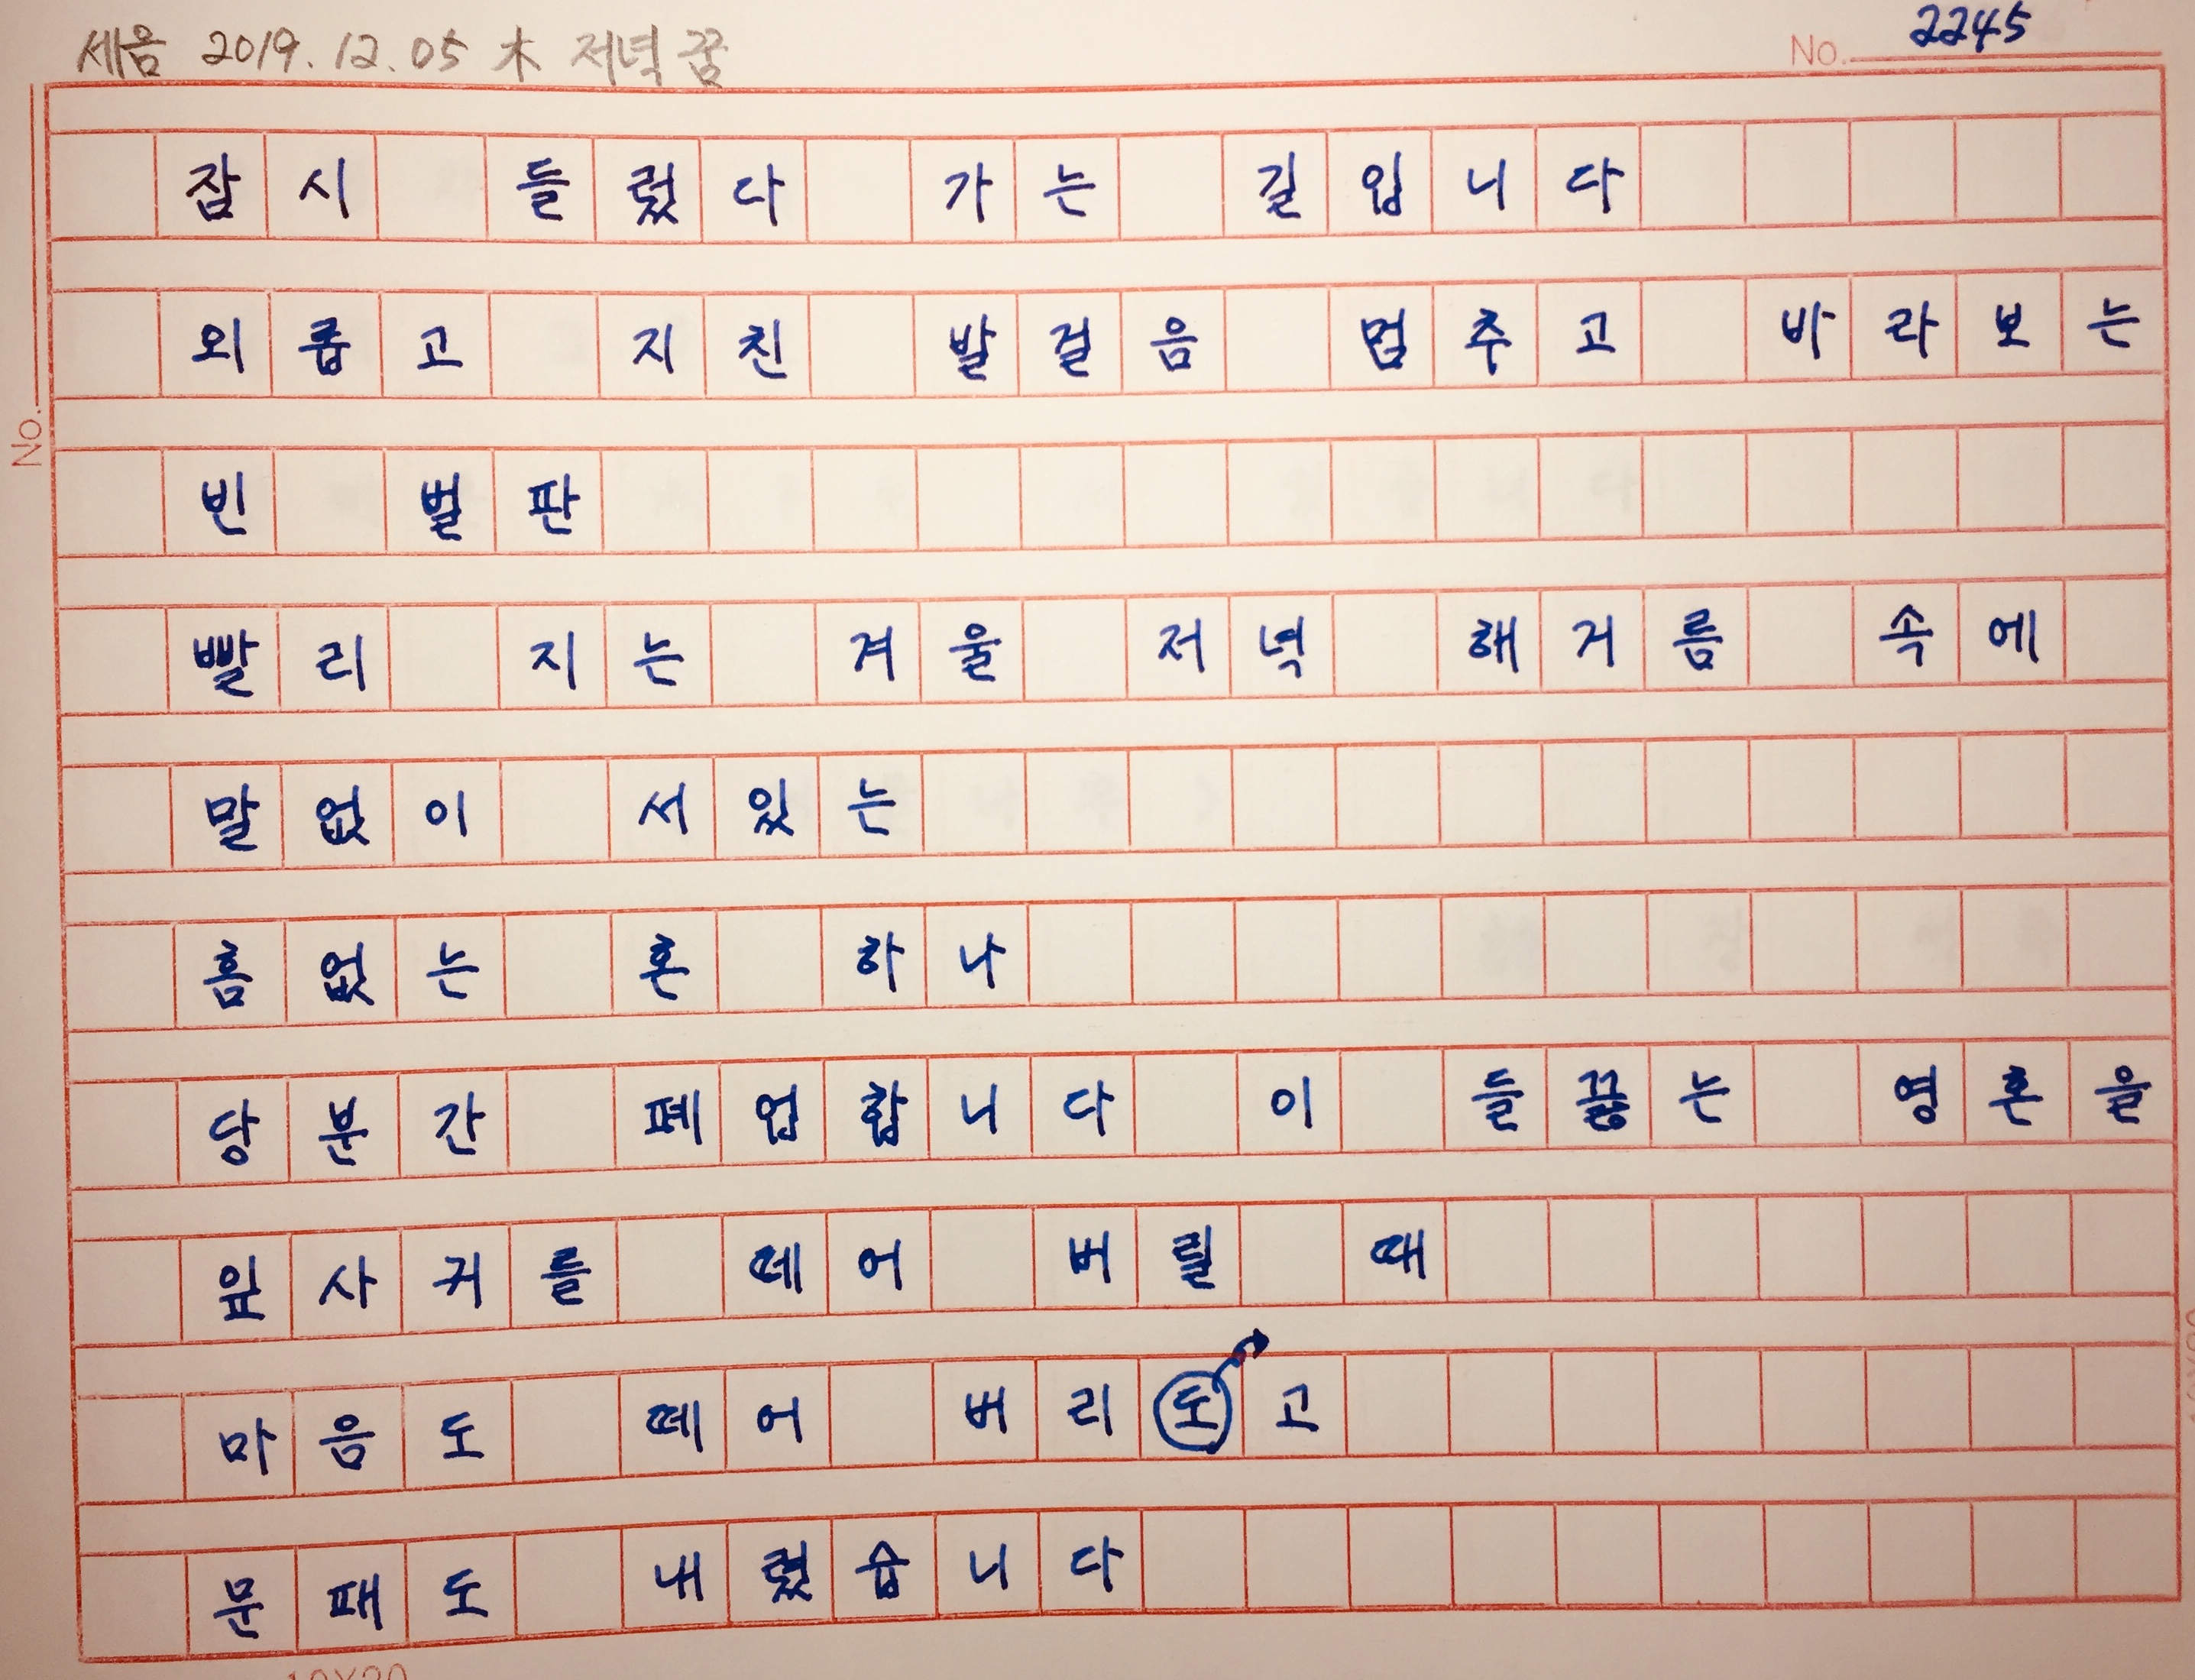 세음 2019.12.05 木 저녁 꿈
No. 2245
No.
잠시 들렀다 가는 길입니다
외롭고 지친 발걸음 멈추고 바라보는
빈 벌판
빨리 지는 겨울 저녁 해거름 속에
말없이 서있는
흠없는 혼 하나
당분간 폐업합니다 이 들끓는 영혼을
잎사귀를 떼어 버릴 때
마음도 떼어 버리도고
문패도 내렸습니다
10X20